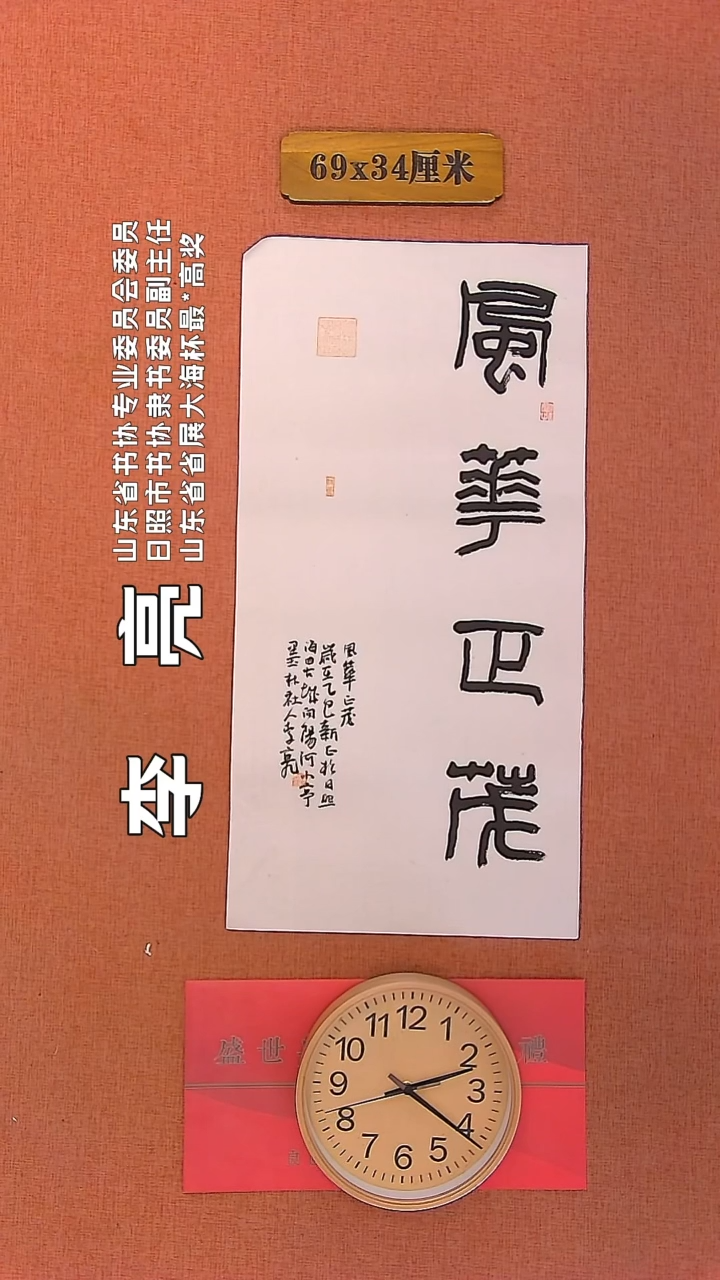 69x34厘米
山东省书协专业委员会委员
日照市书协隶书委员副主任
山东省省展大海杯最*高奖
李亮
風華正茂
風華正茂
歲在乙巳新正於日照
向陽河小亭
社人李亮
盛世
禮
12
1
2
3
4
5
6
7
8
9
10
11